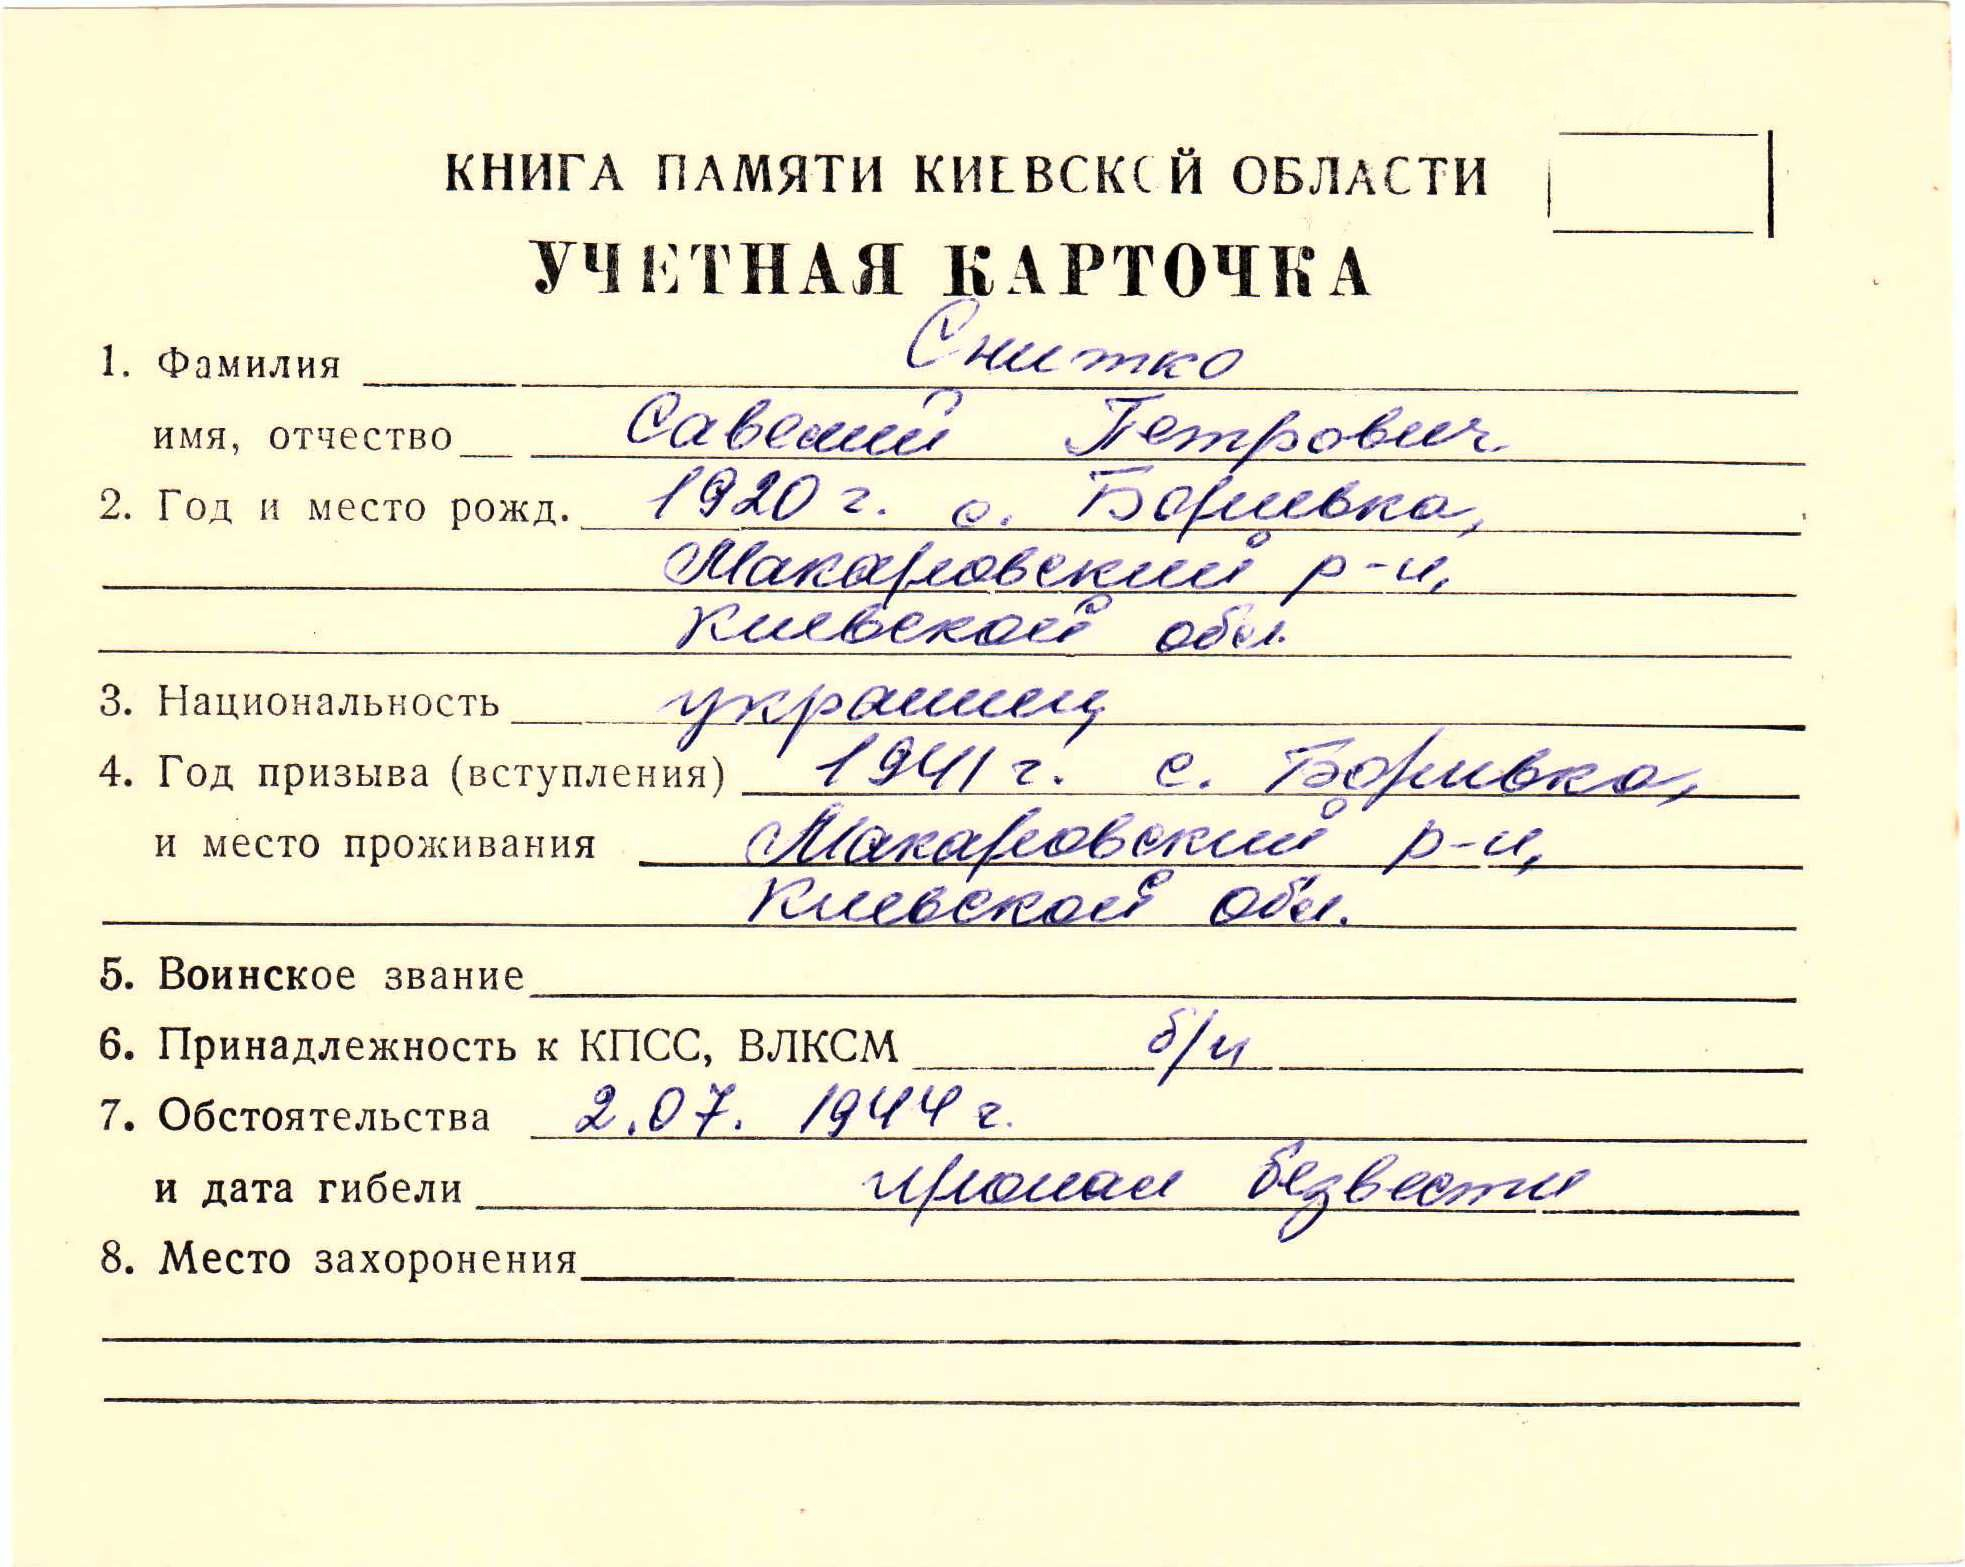 КНИГА ПАМЯТИ КИЕВСКОЙ ОБЛАСТИ
УЧЕТНАЯ КАРТОЧКА
1. Фамилия Снитко
имя, отчество Савелий Петрович
2. Год и место рожд. 1920 г. с. Боривка,
Макаровский р-н,
Киевской обл.
3. Национальность украинец
4. Год призыва (вступления) 1941 г. с. Боривка,
и место проживания Макаровский р-н,
Киевской обл.
5. Воинское звание
6. Принадлежность к КПСС, ВЛКСМ б/п
7. Обстоятельства 2.07. 1944 г.
и дата гибели пропал безвести
8. Место захоронения